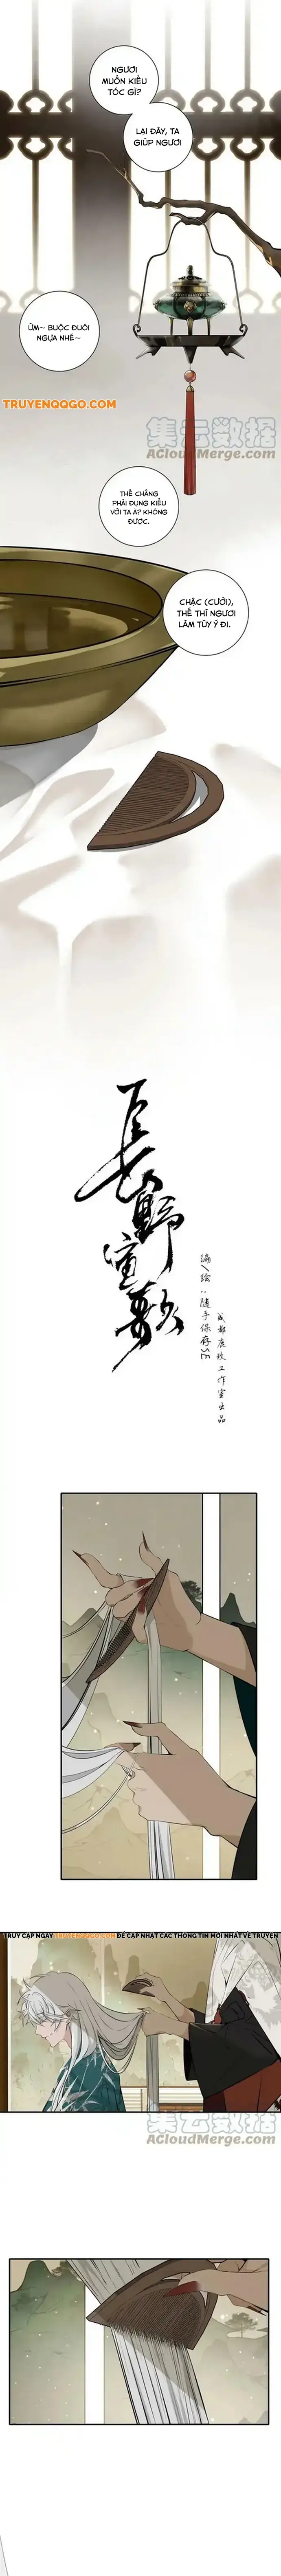 NGƯƠI
MUỐN KIỂU
TÓC GÌ?
LẠI ĐÂY, TA
GIÚP NGƯƠI
ỪM~ BUỘC ĐUÔI
NGỰA NHÉ~
TRUYENQQGO.COM
集云数据
ACloudMerge.com
THẾ CHẲNG
PHẢI ĐỤNG KIỂU
VỚI TA À? KHÔNG
ĐƯỢC.
CHẬC (CƯỜI),
THẾ THÌ NGƯƠI
LÀM TÙY Ý ĐI.
長野宣歌
编/绘:随手保存SE
成都鹿玖工作室出品
TRUY CẬP NGAY TRUYENQQGO.COM ĐỂ CẬP NHẬT CÁC THÔNG TIN MỚI NHẤT VỀ TRUYỆN
集云数据
ACloudMerge.com